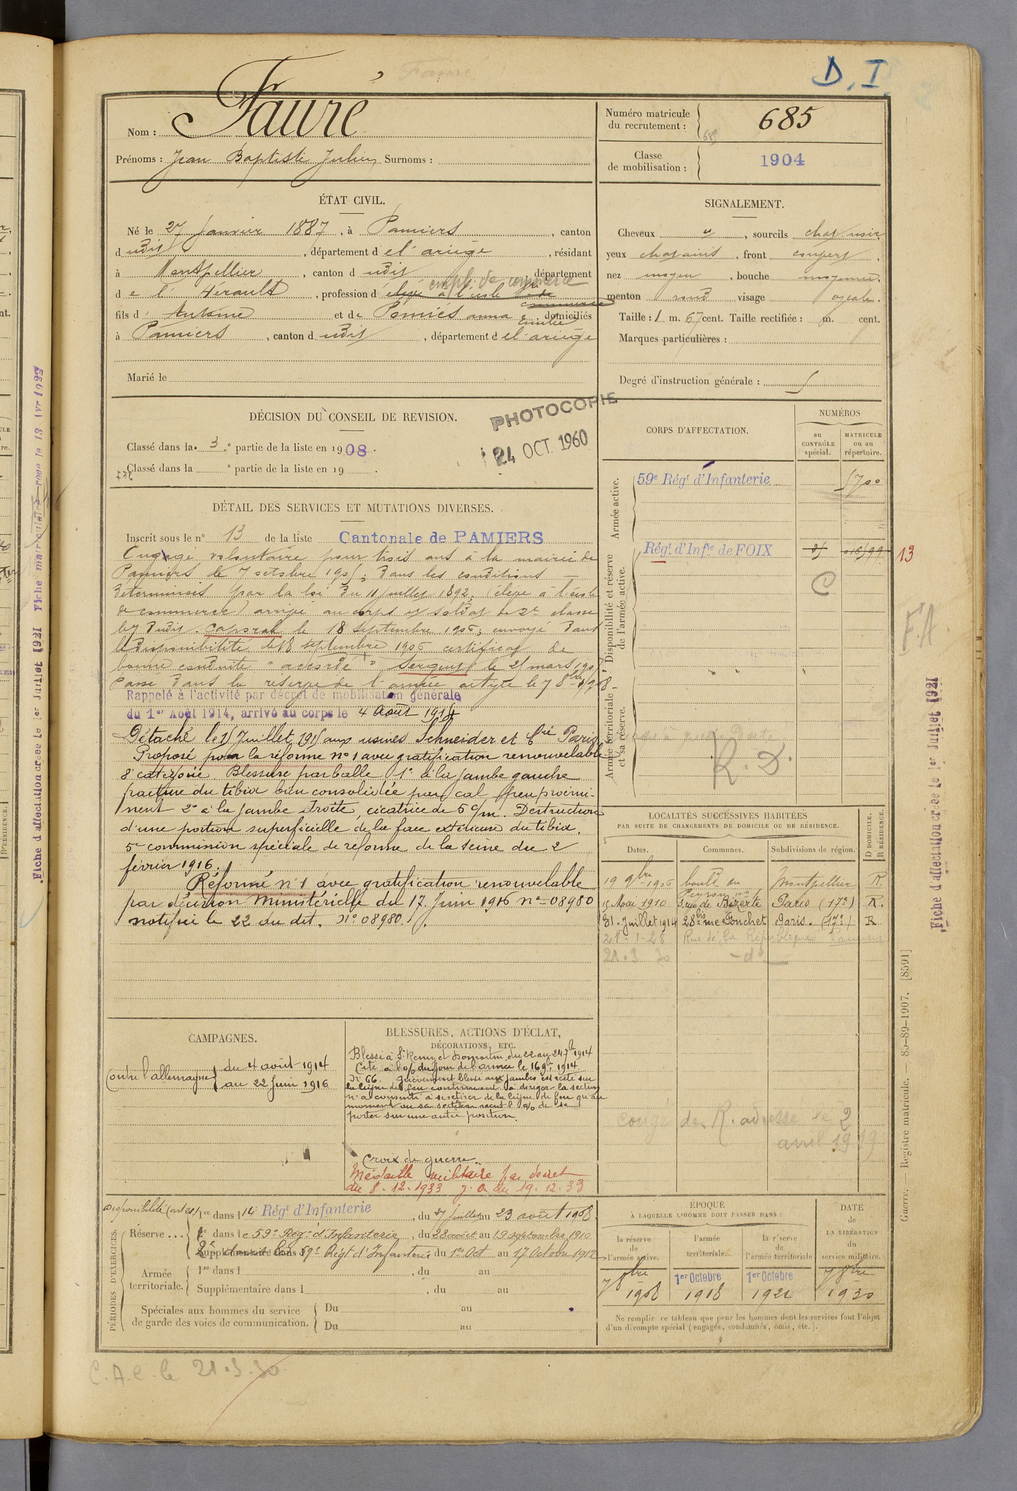 D. I.
Nom : Fauré
Prénoms : Jean Baptiste Julien Surnoms :
Numéro matricule du recrutement : 685
Classe de mobilisation : 1904
ÉTAT CIVIL.
Né le 27 Janvier 1887, à Pamiers, canton
dudit, département de l'ariège, résidant
à Montpellier, canton dudit département
de l'Hérault, profession d'élève à l'école de commerce
empl. de commerce
fils d' Antoine et de Pomiès anna Emilie domiciliés
à Pamiers, canton dudit, département de l'ariège
Marié le
SIGNALEMENT.
Cheveux, sourcils chat noir
yeux chatains, front couvert
nez moyen, bouche moyenne
menton rond visage ovale.
Taille : 1 m. 67 cent. Taille rectifiée : m. cent.
Marques particulières :
Degré d'instruction générale :
DÉCISION DU CONSEIL DE REVISION.
Classé dans la 3e partie de la liste en 1908.
Classé dans la e partie de la liste en 19 .
PHOTOCOPIE
24 OCT. 1960
CORPS D'AFFECTATION.
NUMÉROS
au CONTRÔLE spécial.
MATRICULE ou au répertoire.
Armée active.
59e Régt d'Infanterie
Disponibilité et réserve de l'armée active.
Régt d'Infie de FOIX
13
C
F.A
Armée territoriale et sa réserve.
R. D.
DÉTAIL DES SERVICES ET MUTATIONS DIVERSES.
Inscrit sous le n° 13 de la liste Cantonale de PAMIERS
Engagé volontaire pour trois ans à la mairie de
Pamiers le 7 octobre 1905; Dans les conditions
déterminées par la loi du 11 juillet 1892, (élève à l'école
de commerce) arrivé au corps et soldat de 2e classe
le 7 dudit. caporal le 18 Septembre 1906; envoyé dans
la disponibilité le 18 septembre 1906 certificat de
bonne conduite "accordé" Sergent le 21 mars 1908
Passé dans la réserve de l'armée active le 7 8bre 1908
Rappelé à l'activité par décret de mobilisation générale
du 1er Août 1914, arrivé au corps le 4 Août 1914
Détaché le 15 Juillet 1915 aux usines Schneider et Cie Paris
Proposé pour la réforme n° 1 avec gratification renouvelable
8e catégorie. Blessure par balle 1° à la jambe gauche
fracture du tibia bien consolidée par cal peu proémi-
nent 2° à la jambe droite, cicatrice de 5 c/m. Destruction
d'une portion superficielle de la face extérieure du tibia.
5e commission spéciale de réforme de la Seine du 2
février 1916.
Réformé n° 1 avec gratification renouvelable
par décision ministérielle du 17 Juin 1916 n° 08980
notifié le 22 du dit. N° 08980.
LOCALITÉS SUCCESSIVES HABITÉES
PAR SUITE DE CHANGEMENTS DE DOMICILE OU DE RÉSIDENCE.
Dates. Communes. Subdivisions de région. D DOMICILE. R RÉSIDENCE.
19 9bre 1906 Montpellier R
15 Mai 1910 rue de Bizerte Paris (17e) R.
31 Juillet 1914 28 bis rue Fouchet Paris (17e) R
28-1-28 Rue de la République Pamiers
21.3.30 -d°-
CAMPAGNES.
Contre l'allemagne du 4 août 1914
au 22 Juin 1916
BLESSURES, ACTIONS D'ÉCLAT,
DÉCORATIONS, ETC.
Blessé à St Remy et Dompartin du 22 au 24 7bre 1914
Cité à l'ordre du jour de l'armée le 16 9bre 1914
N° 66. Grièvement blessé aux jambes est resté sur
la ligne de feu continuant à diriger sa section
n'a consenti à se retirer de la ligne de feu qu'au
moment où sa section reçut l'ordre de se
porter sur une autre position.
Croix de guerre
Médaille militaire par décret
du 8.12.1933 J.O du 19.12.33
congé de R. adresse le 2
avril 1919
PÉRIODES D'EXERCICES.
Réserve...
1re dans le 14 Régt d'Infanterie, du 27 Juillet au 23 août 1908
2e dans le 59e Régt d'Infanterie, du 28 août au 19 septembre 1910
Supplémentaire dans le 59e Régt d'Infanterie du 1er Oct au 17 Octobre 1912
Armée territoriale.
1re dans l , du au
Supplémentaire dans l , du au
Spéciales aux hommes du service de garde des voies de communication.
Du au
Du au
EPOQUE
À LAQUELLE L'HOMME DOIT PASSER DANS :
la réserve de l'armée active. l'armée territoriale. la réserve de l'armée territoriale
DATE de LA LIBÉRATION du service militaire.
7 8bre 1908 1er Octobre 1918 1er Octobre 1924 7 8bre 1930
Ne remplir ce tableau que pour les hommes dont les services font l'objet
d'un décompte spécial (engagés, condamnés, omis, etc.).
C.A.C. le 21.3.30
Fiche d'affectation créée le 1er Juillet 1921
Guerre. Registre matricule. — 85-89-1907. [8591]
Fiche d'affectation créée le 1er Juillet 1921